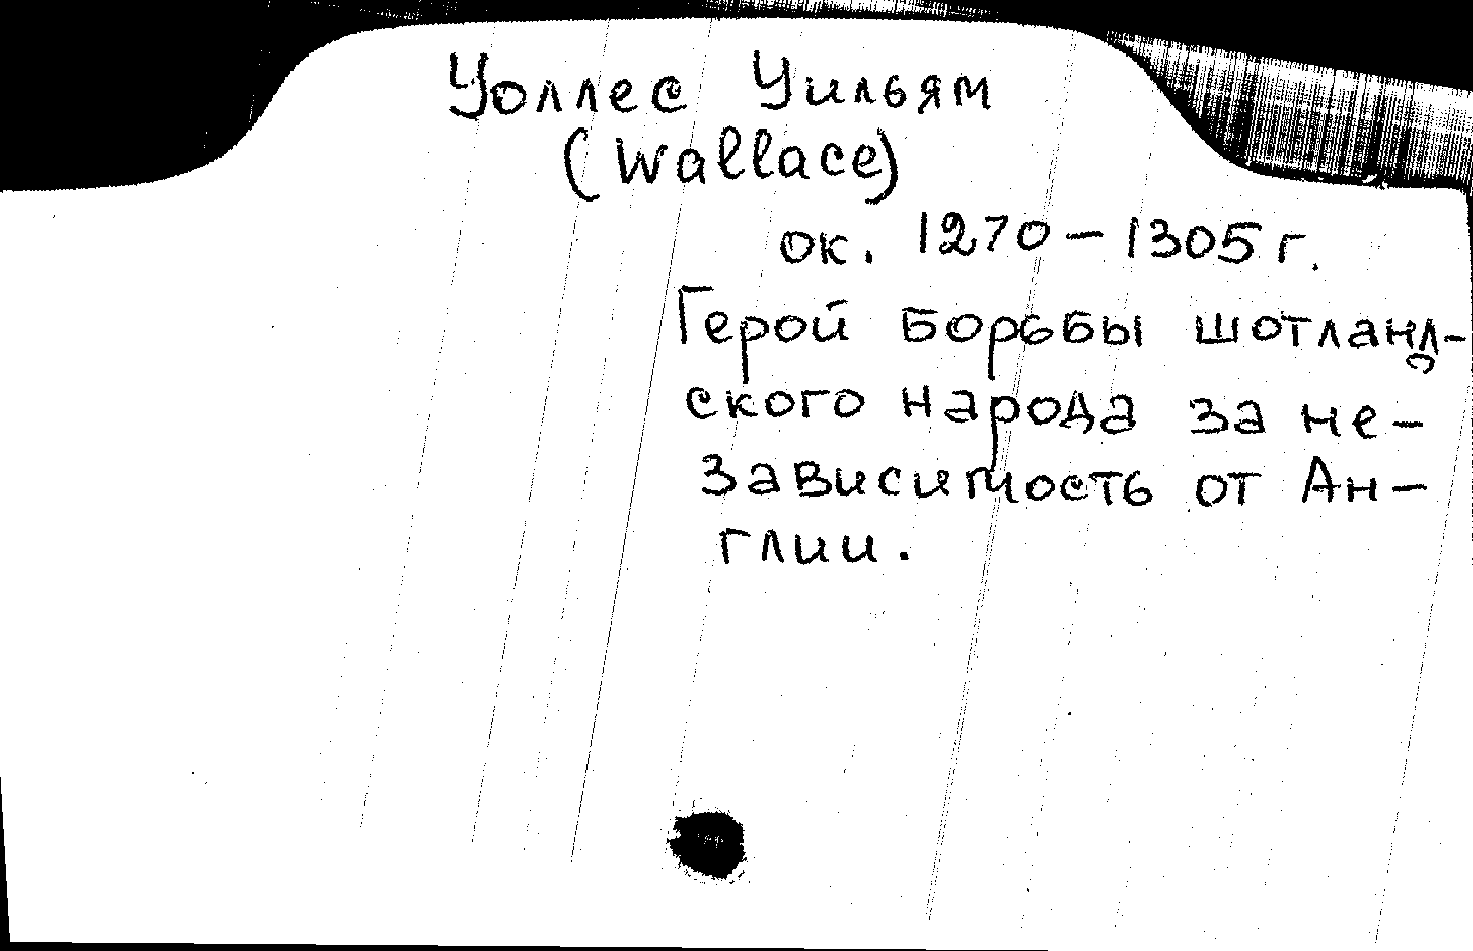 Уоллес Уильям
(Wallace)
ок. 1270 – 1305 г.
Герой борьбы шотланд-
ского народа за не-
зависимость от Ан-
глии.